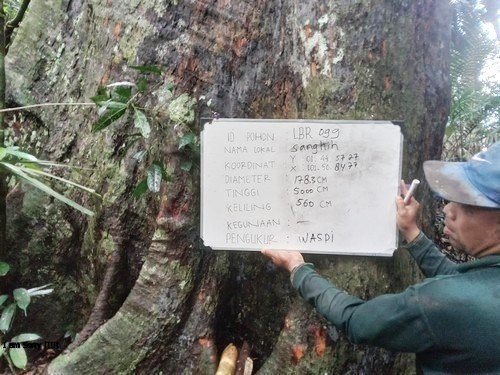 ID POHON : LBR 099
NAMA LOKAL : Sangkih
KOORDINAT Y 01. 44 5727
X 101. 50. 8477
DIAMETER : 178.3 CM
TINGGI : 5000 CM
KELILING : 560 CM
KEGUNAAN : —
PENGUKUR : WASDI